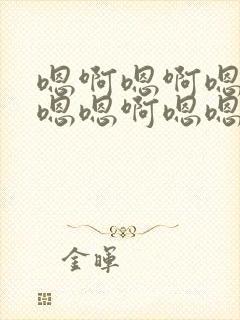 嗯啊嗯啊嗯
嗯嗯啊嗯嗯
金晖